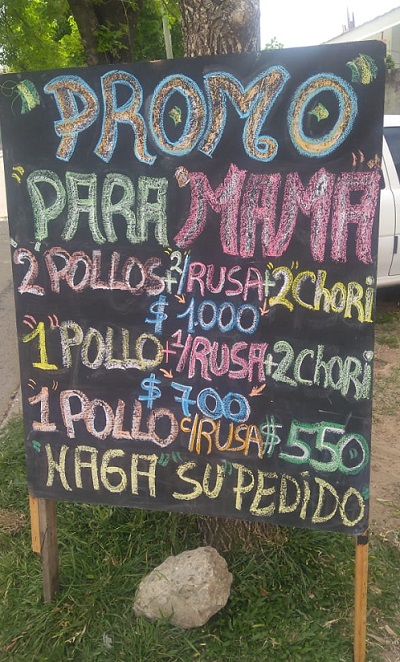 PROMO
PARA MAMA
2 POLLOS + 2/RUSA + "2" CHORI
$ 1.000
"1" POLLO + 1/RUSA + 2 CHORI
$ 700
"1" POLLO C/RUSA $ 550
"HAGA" SU "PEDIDO"